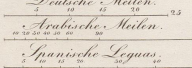 Deutsche Meilen.
5 10 15 20 25
Arabische Meilen.
10 20 30 40 50 60 90
Spanische Leguas.
5 10 15 20 30 40